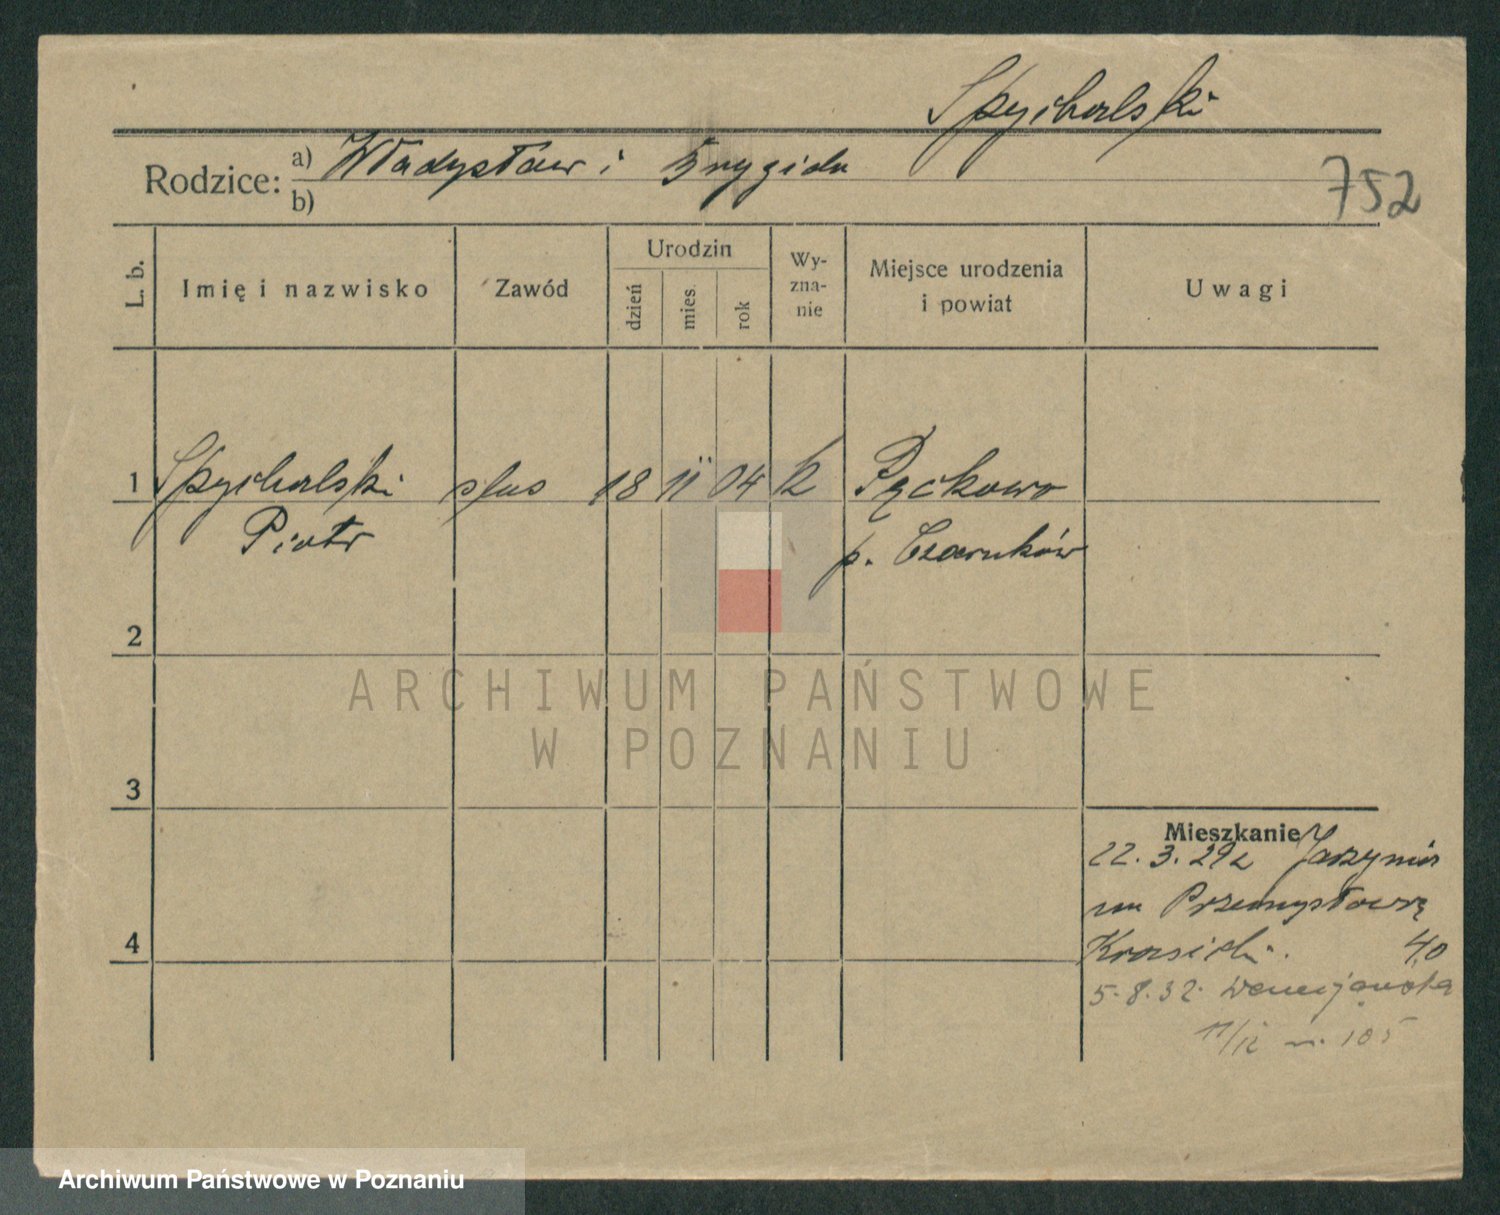 Spychalski
Rodzice: a) Władysław i Brygida
b)
752
L. b. Imię i nazwisko Zawód Urodzin dzień mies. rok Wy-zna-nie Miejsce urodzenia i powiat Uwagi
1 Spychalski ślus 18 II 04 k Pęckowo
Piotr p. Czarnków
2
ARCHIWUM PAŃSTWOWE
W POZNANIU
3
Mieszkanie
22. 3. 29
Przemysłową
40
5. 8. 32. Wenecjańska
11/12 m. 105
4
Archiwum Państwowe w Poznaniu